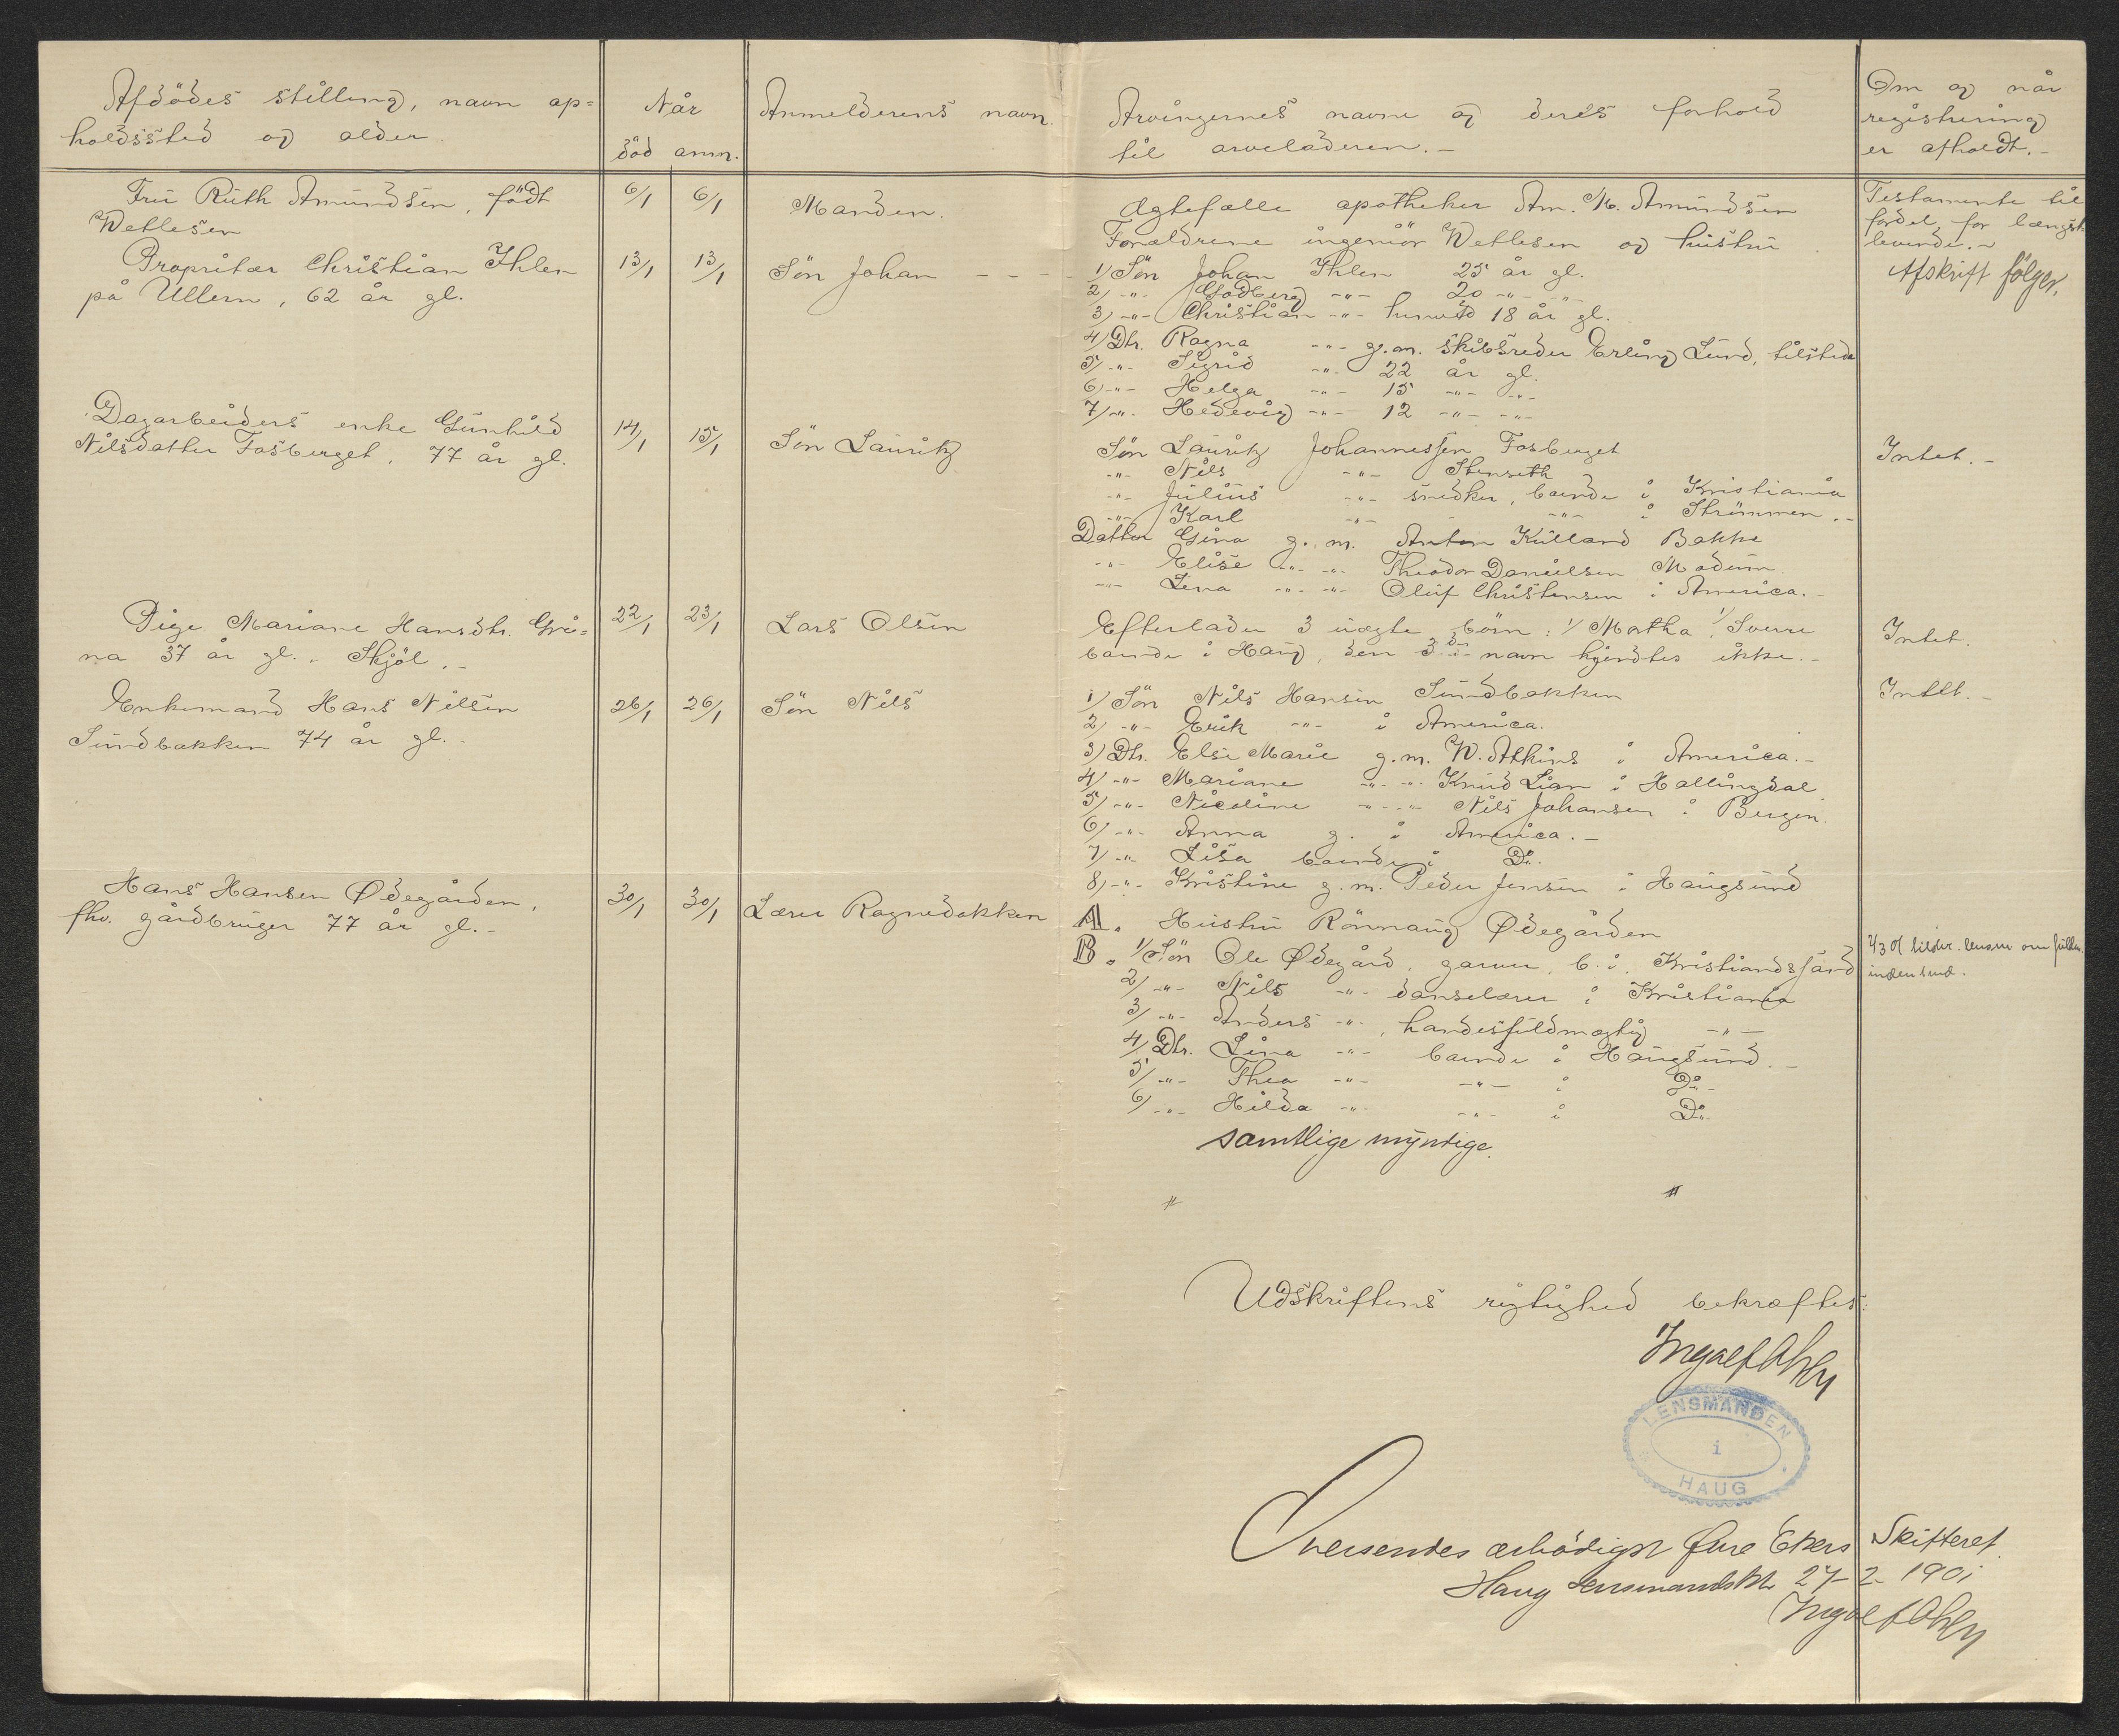 Afdödes stilling, navn op=
holdssted og alder
Når
död anm.
Anmelderens navn.
Arvingernes navne og deres forhold
til arveladeren.-
Om og når
registrering
er afholdt.-
Fru Ruth Amundsen, födt
Wetlesen
6/1 6/1
Manden.
Ægtefælle apotheker Am. M. Amundsen
Forældrene ingeniör Wetlesen og hustru
Testamente til
fordel for længst
levende.-
Propritær Christian Ihlen
på Ullern, 62 år gl.
13/1 13/1
Sön Johan - - -
1) Sön Johan Ihlen 25 år gl.
2) -"- Godberg -"- 20 -"- -"-
3) -"- Christian -"- henved 18 år gl.
4) Dtr. Ragna -"- g.m. skibsreder Erling Lund, tilstede
5) -"- Sigrid -"- 22 år gl.
6) -"- Helga -"- 15 -"- -"-
7) -"- Hedevig -"- 12 -"- -"-
Afskrift følger.
Dagarbeiders enke Gunhild
Nilsdatter Fosberget, 77 år gl.
14/1 15/1
Sön Lauritz
Sön Lauritz Johannessen Fosberget
-"- Nils -"- Stenseth
-"- Julius -"- snedker, boende i Kristiania
-"- Karl -"- -"- i Strömmen.-
Datter Gina g. m. Anton Killand Bakke
-"- Elise -"- -"- Theodor Danielsen Modum
-"- Lina -"- -"- Oluf Christensen i America.-
Intet.-
Pige Mariane Hansdtr. Grå=
na 37 år gl. Skjöl.-
22/1 23/1
Lars Olsen
Efterlader 3 uægte börn: 1/ Martha, 1/ Sverre
boende i Haug, den 3die navn kjendtes ikke.-
Intet.
Enkemand Hans Nilsen
Sundbakken 74 år gl.-
26/1 26/1
Sön Nils
1) Sön Nils Hansen Sundbakken
2) -"- Erik -"- i America.
3) Dtr. Else Marie g.m. W. Atkins i America.-
4) -"- Mariane -"- -"- Knud Lian i Hallingdal
5) -"- Nicoline -"- -"- Nils Johansen i Bergen.
6) -"- Anna g. i America.-
7) -"- Lisa boende i Do.
8) -"- Kristine g.m. Peder Jensen i Haugsund
Intet.-
Hans Hansen Ødegården,
fhv. gårdbruger 77 år gl.-
30/1 30/1
Lærer Ragnedokken
A. Hustru Rönnaug Ødegården
B. 1/ Sön Ole Ødegård, garver, b. i. Kristiandssand
2/ -"- Nils -"- danselærer i Kristiania
3/ -"- Anders -"-, handelsfuldmægtig -"-
4/ Dtr. Lina -"- boende i Haugsund.-
5/ -"- Thea -"- -"- i Do-
6/ -"- Hilda -"- -"- i Do-
samtlige myndige.
Udskriftens rigtighed bekræftes:
Ingolf
LENSMANDEN
i
HAUG
Oversendes ærbödigst Øvre Ekers Skifteret.
Haug Lensmandsktr 27-2-1901
Ingolf